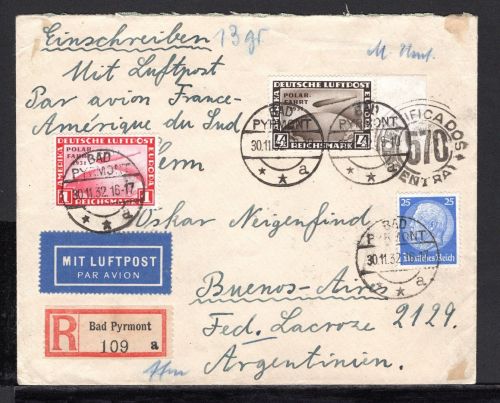 Einschreiben
13 gr.
Mit Luftpost
Par avion France-
Amérique du Sud
Herrn
Oskar Neigenfind
Buenos-Aires
Fed. Lacroze 2129.
Argentinien.
DEUTSCHE LUFTPOST
POLAR-
FAHRT
1931
1 REICHSMARK 1
DEUTSCHE LUFTPOST
POLAR-
FAHRT
4 REICHSMARK 4
BAD
PYRMONT
30.11.32.16-17
a
BAD
PYRMONT
30.11
a
BAD
PYRMONT
a
CERTIFICADOS
570
CENTRAL
25 25
Deutsches Reich
BAD
PYRMONT
30.11.32
a
MIT LUFTPOST
PAR AVION
R
Bad Pyrmont
109 a